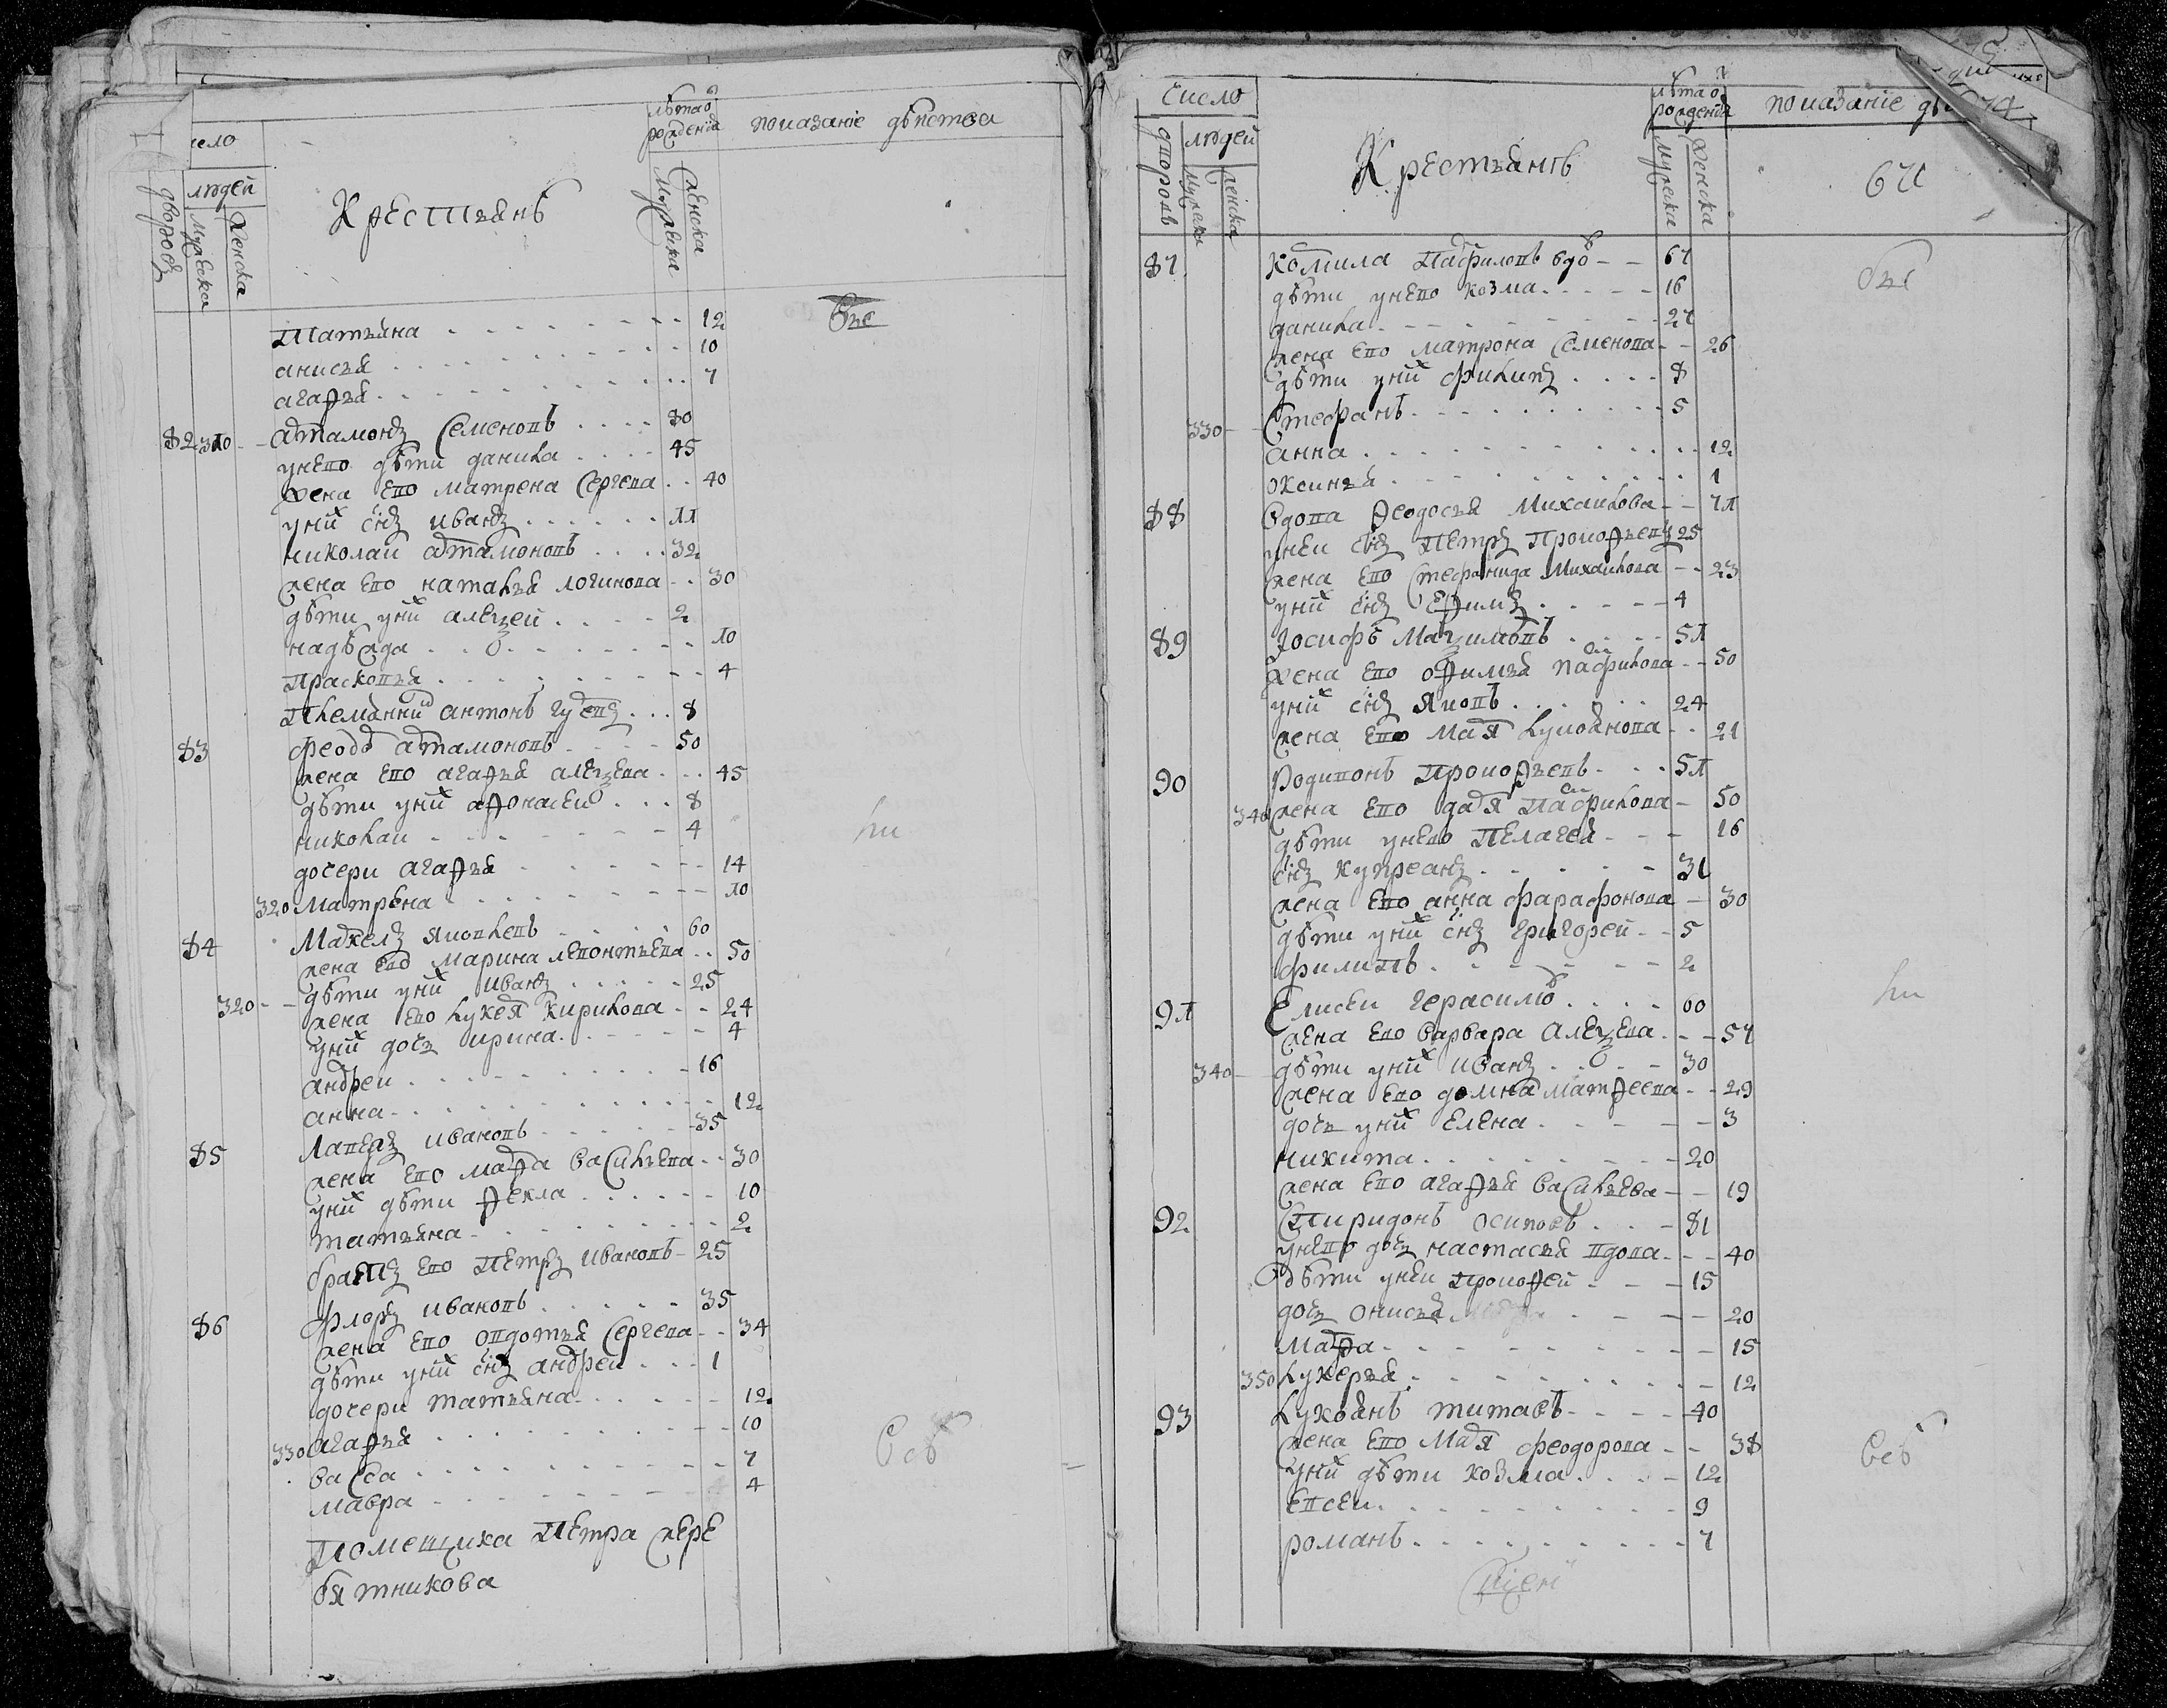 число
людей
дворовъ
мужеска
женска
Крестьянъ
лѣта ѿ рожденiя
мужеска
женска
показанiе дѣйства
Татьяна 12
анисья 10
агафья 7
82 310 артамонъ Семеновъ 80
унево дѣти данила 45
жена ево матрена Сергева 40
унихъ снъ иванъ 11
николаи артамоновъ 32
жена ево наталья логинова 30
дѣти унихъ алеѯей 2
надѣжда 10
прасковья 4
племянникъ антонъ 8
83 феодоръ артамоновъ 50
жена ево агафья алеѯева 45
дѣти унихъ афонасеи 8
николаи 4
дочери агафья 14
320 матрѣна 10
84 Маркелъ яковлевъ 60
жена ево марина левонтьева 50
320 дѣти унихъ иванъ 25
жена ево лукеря кирилова 24
унихъ дочь ирина 4
андреи 16
анна 12
85 Лаверъ ивановъ 35
жена ево марфа васильева 30
унихъ дѣти фекла 10
татьяна 2
братъ ево петръ ивановъ 25
86 флоръ ивановъ 35
жена ево овдотья Сергева 34
дѣти унихъ снъ андреи 1
дочери татьяна 12
330 агафья 10
васса 7
мавра 4
помещика петра жере
бятникова
все
ли
бы
число
людей
дворовъ
мужеска
женска
Крестьянъ
лѣта ѿ рожденiя
мужеска
женска
показанiе
87 Корнила панфиловъ вдовъ 67
дѣти унево козма 16
данила 27
жена ево матрона Семенова 26
дѣти унихъ филипъ 8
330 Стефанъ 5
анна 12
оксинья 1
88 вдова феодосья Михаилова 71
унеи снъ петръ прокофьевъ 25
жена ево стефанида Михаилова 23
унихъ снъ ефимъ 4
89 Iосифъ Маѯимовъ 51
жена ево офимья панфилова 50
унихъ снъ яковъ 24
жена ево маря лукоянова 21
90 Родивонъ прокофьевъ 51
340 жена ево даря панфилова 50
дѣти унево пелагея 16
снъ купреянъ 31
жена ево анна фарафонова 30
дѣти унихъ снъ григорей 5
филипъ 2
91 Елисеи герасимовъ 60
жена ево варвара алеѯева 57
340 дѣти унихъ иванъ 30
жена ево домна матфеева 29
дочь унихъ елена 3
никита 20
жена ево агафья васильева 19
92 Спиридонъ осиповъ 81
унево дочь настасья вдова 40
дѣти унеи прокофеи 15
дочь онисья 20
марфа 15
350 лукерья 12
93 Лукоянъ титовъ 40
жена ево маря феодорова 38
унихъ дѣти козма 12
евсеи 9
романъ 7